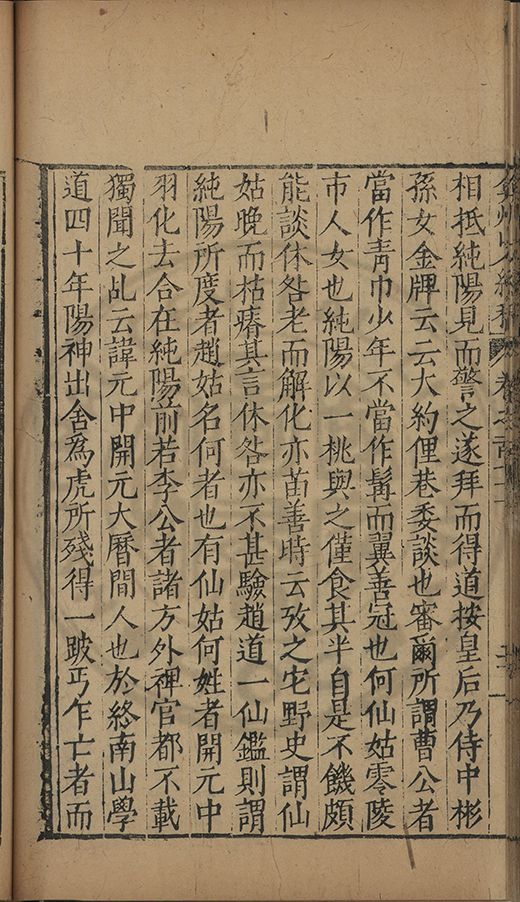 弇州山人續稿 卷之百
相抵純陽見而警之遂拜而得道按皇后乃侍中彬
孫女金牌云云大約俚巷委談也審爾所謂曹公者
當作青巾少年不當作髯而翼善冠也何仙姑零陵
市人女也純陽以一桃與之僅食其半自是不饑頗
能談休咎老而解化亦苗善時云攷之它野史謂仙
姑晚而枯瘠其言休咎亦不甚驗趙道一仙鑑則謂
純陽所度者趙姑名何者也有仙姑何姓者開元中
羽化去合在純陽前若李公者諸方外稗官都不載
獨聞之乩云諱元中開元大曆間人也於終南山學
道四十年陽神出舍為虎所殘得一跛丐乍亡者而